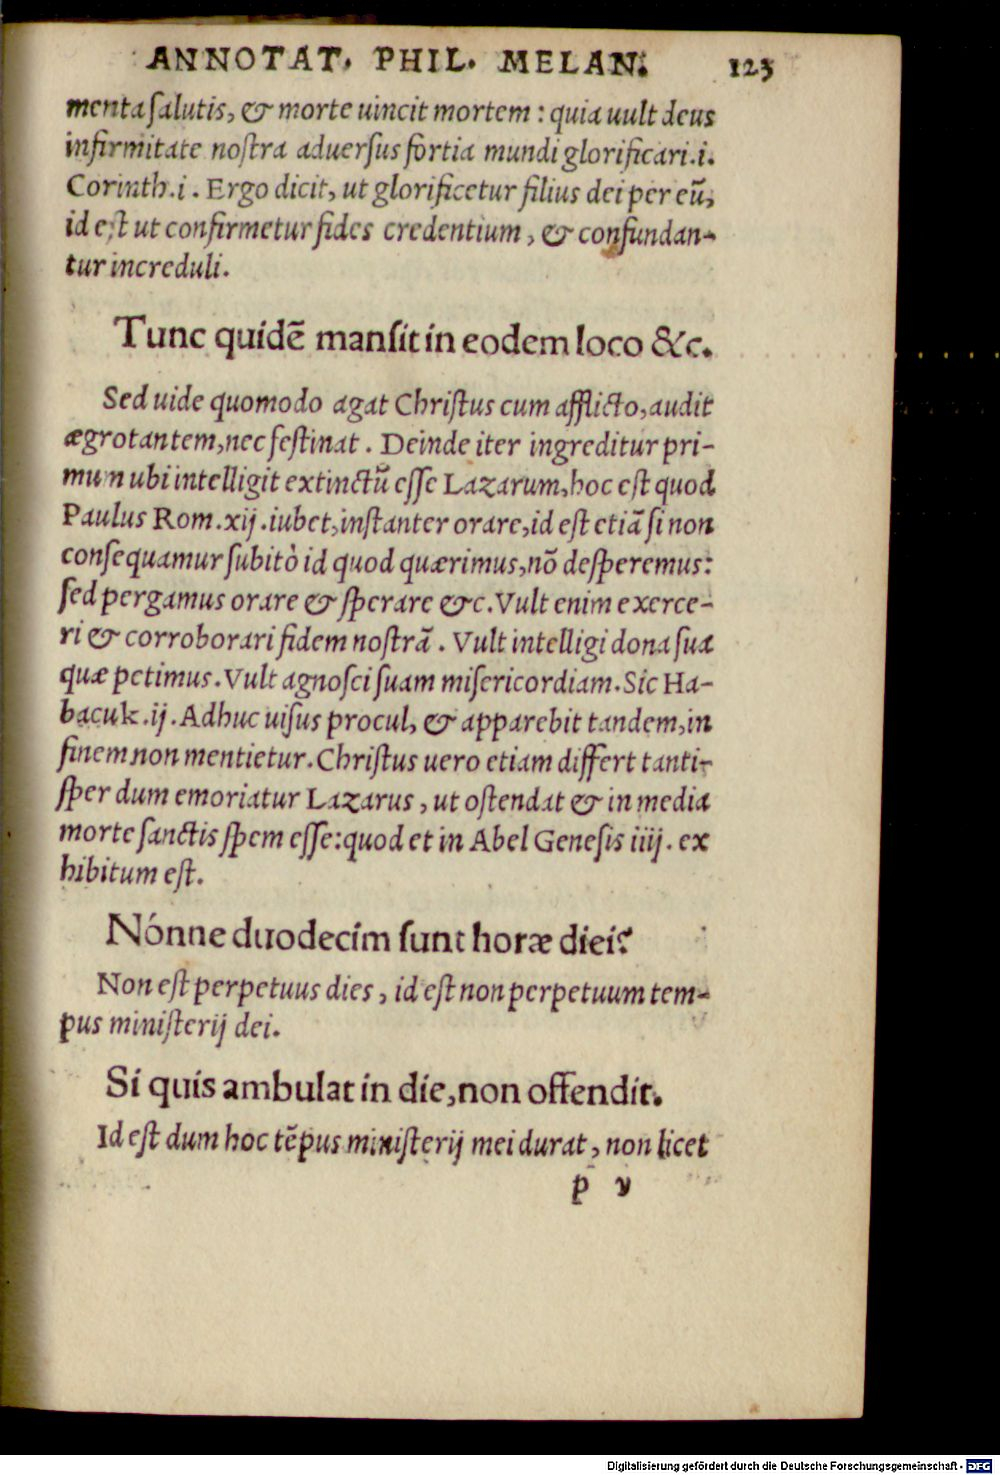 ANNOTAT. PHIL. MELAN. 123
menta ſalutis, & morte uincit mortem : quia uult deus
infirmitate noſtra aduerſus fortia mundi glorificari.i.
Corinth.i. Ergo dicit, ut glorificetur filius dei per eū,
id eſt ut confirmetur fides credentium, & confundan-
tur increduli.
Tunc quidē manſit in eodem loco &c.
Sed uide quomodo agat Chriſtus cum afflicto, audit
ægrotantem, nec feſtinat. Deinde iter ingreditur pri-
mun ubi intelligit extinctū eſſe Lazarum, hoc eſt quod
Paulus Rom.xij.iubet, inſtanter orare, id eſt etiā ſi non
conſequamur ſubitò id quod quærimus, nō deſperemus:
ſed pergamus orare & ſperare &c. Vult enim exerce-
ri & corroborari fidem noſtrā. Vult intelligi dona ſua
quæ petimus. Vult agnoſci ſuam miſericordiam. Sic Ha-
bacuk.ij. Adhuc uiſus procul, & apparebit tandem, in
finem non mentietur. Chriſtus uero etiam differt tanti-
ſper dum emoriatur Lazarus, ut oſtendat & in media
morte ſanctis ſpem eſſe: quod et in Abel Geneſis iiij. ex
hibitum eſt.
Nónne duodecim ſunt horæ diei?
Non eſt perpetuus dies, id eſt non perpetuum tem-
pus miniſterij dei.
Si quis ambulat in die, non offendit.
Id eſt dum hoc tēpus miniſterij mei durat, non licet
p v
Digitalisierung gefördert durch die Deutsche Forschungsgemeinschaft - DFG